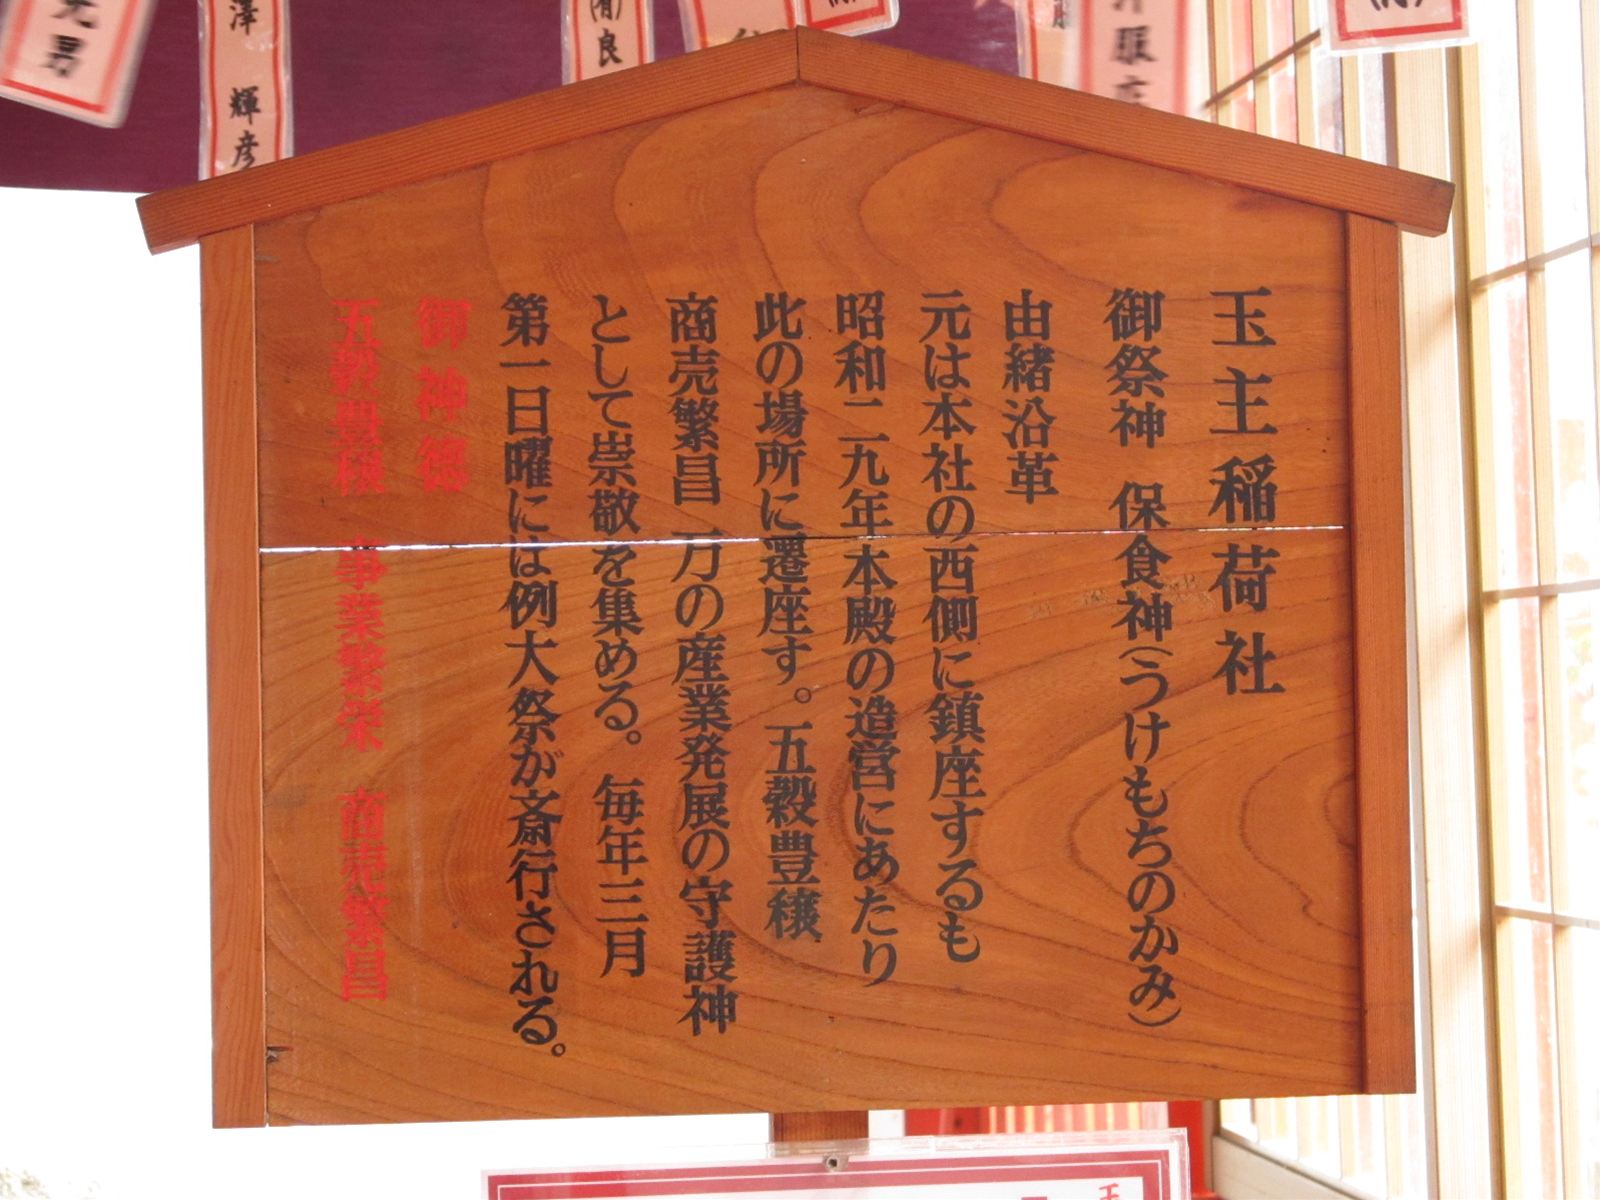 玉主稲荷社
御祭神 保食神(うけもちのかみ)
由緒沿革
元は本社の西側に鎮座するも
昭和二九年本殿の造営にあたり
此の場所に遷座す。五穀豊穣
商売繁昌 万の産業発展の守護神
として崇敬を集める。毎年三月
第一日曜には例大祭が斎行される。
御神徳
五穀豊穣 事業繁栄 商売繁昌
輝彦
㈲良